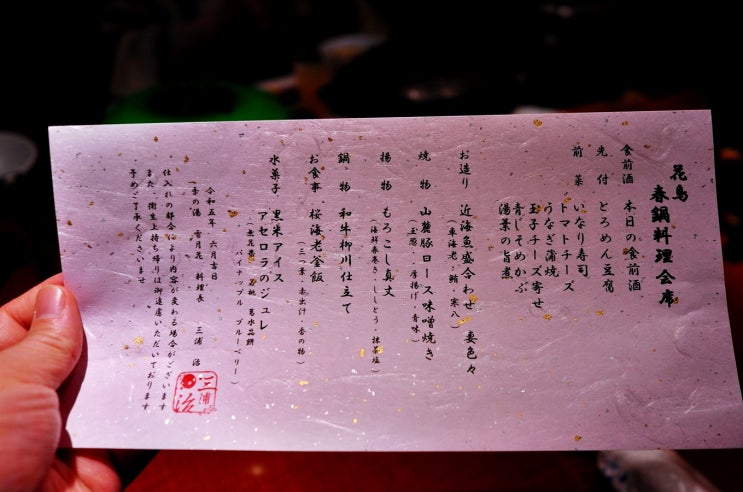 花鳥
春鍋料理会席
食前酒 本日の食前酒
先付 とろめん豆腐
前菜 いなり寿司
トマトチーズ
うなぎ蒲焼
玉子チーズ寄せ
青じそめかぶ
湯葉の旨煮
お造り 近海魚盛合わせ 妻色々
(車海老・鮪・寒八)
焼物 山麓豚ロース味噌焼き
(玉葱・厚揚げ・香味)
揚物 もろこし真丈
(海鮮春巻き・ししとう・抹茶塩)
鍋物 和牛柳川仕立て
お食事 桜海老釜飯
(三つ葉・赤出汁・香の物)
水菓子 黒米アイス
アセロラのジュレ
パイナップル ブルーベリー)
令和五年 六月吉日
季の湯 雪月花 料理長 三浦 治
仕入れの都合により内容が変わる場合がございます
また、衛生上持ち帰りは御遠慮いただいております
予めご了承くださいませ
三浦
治